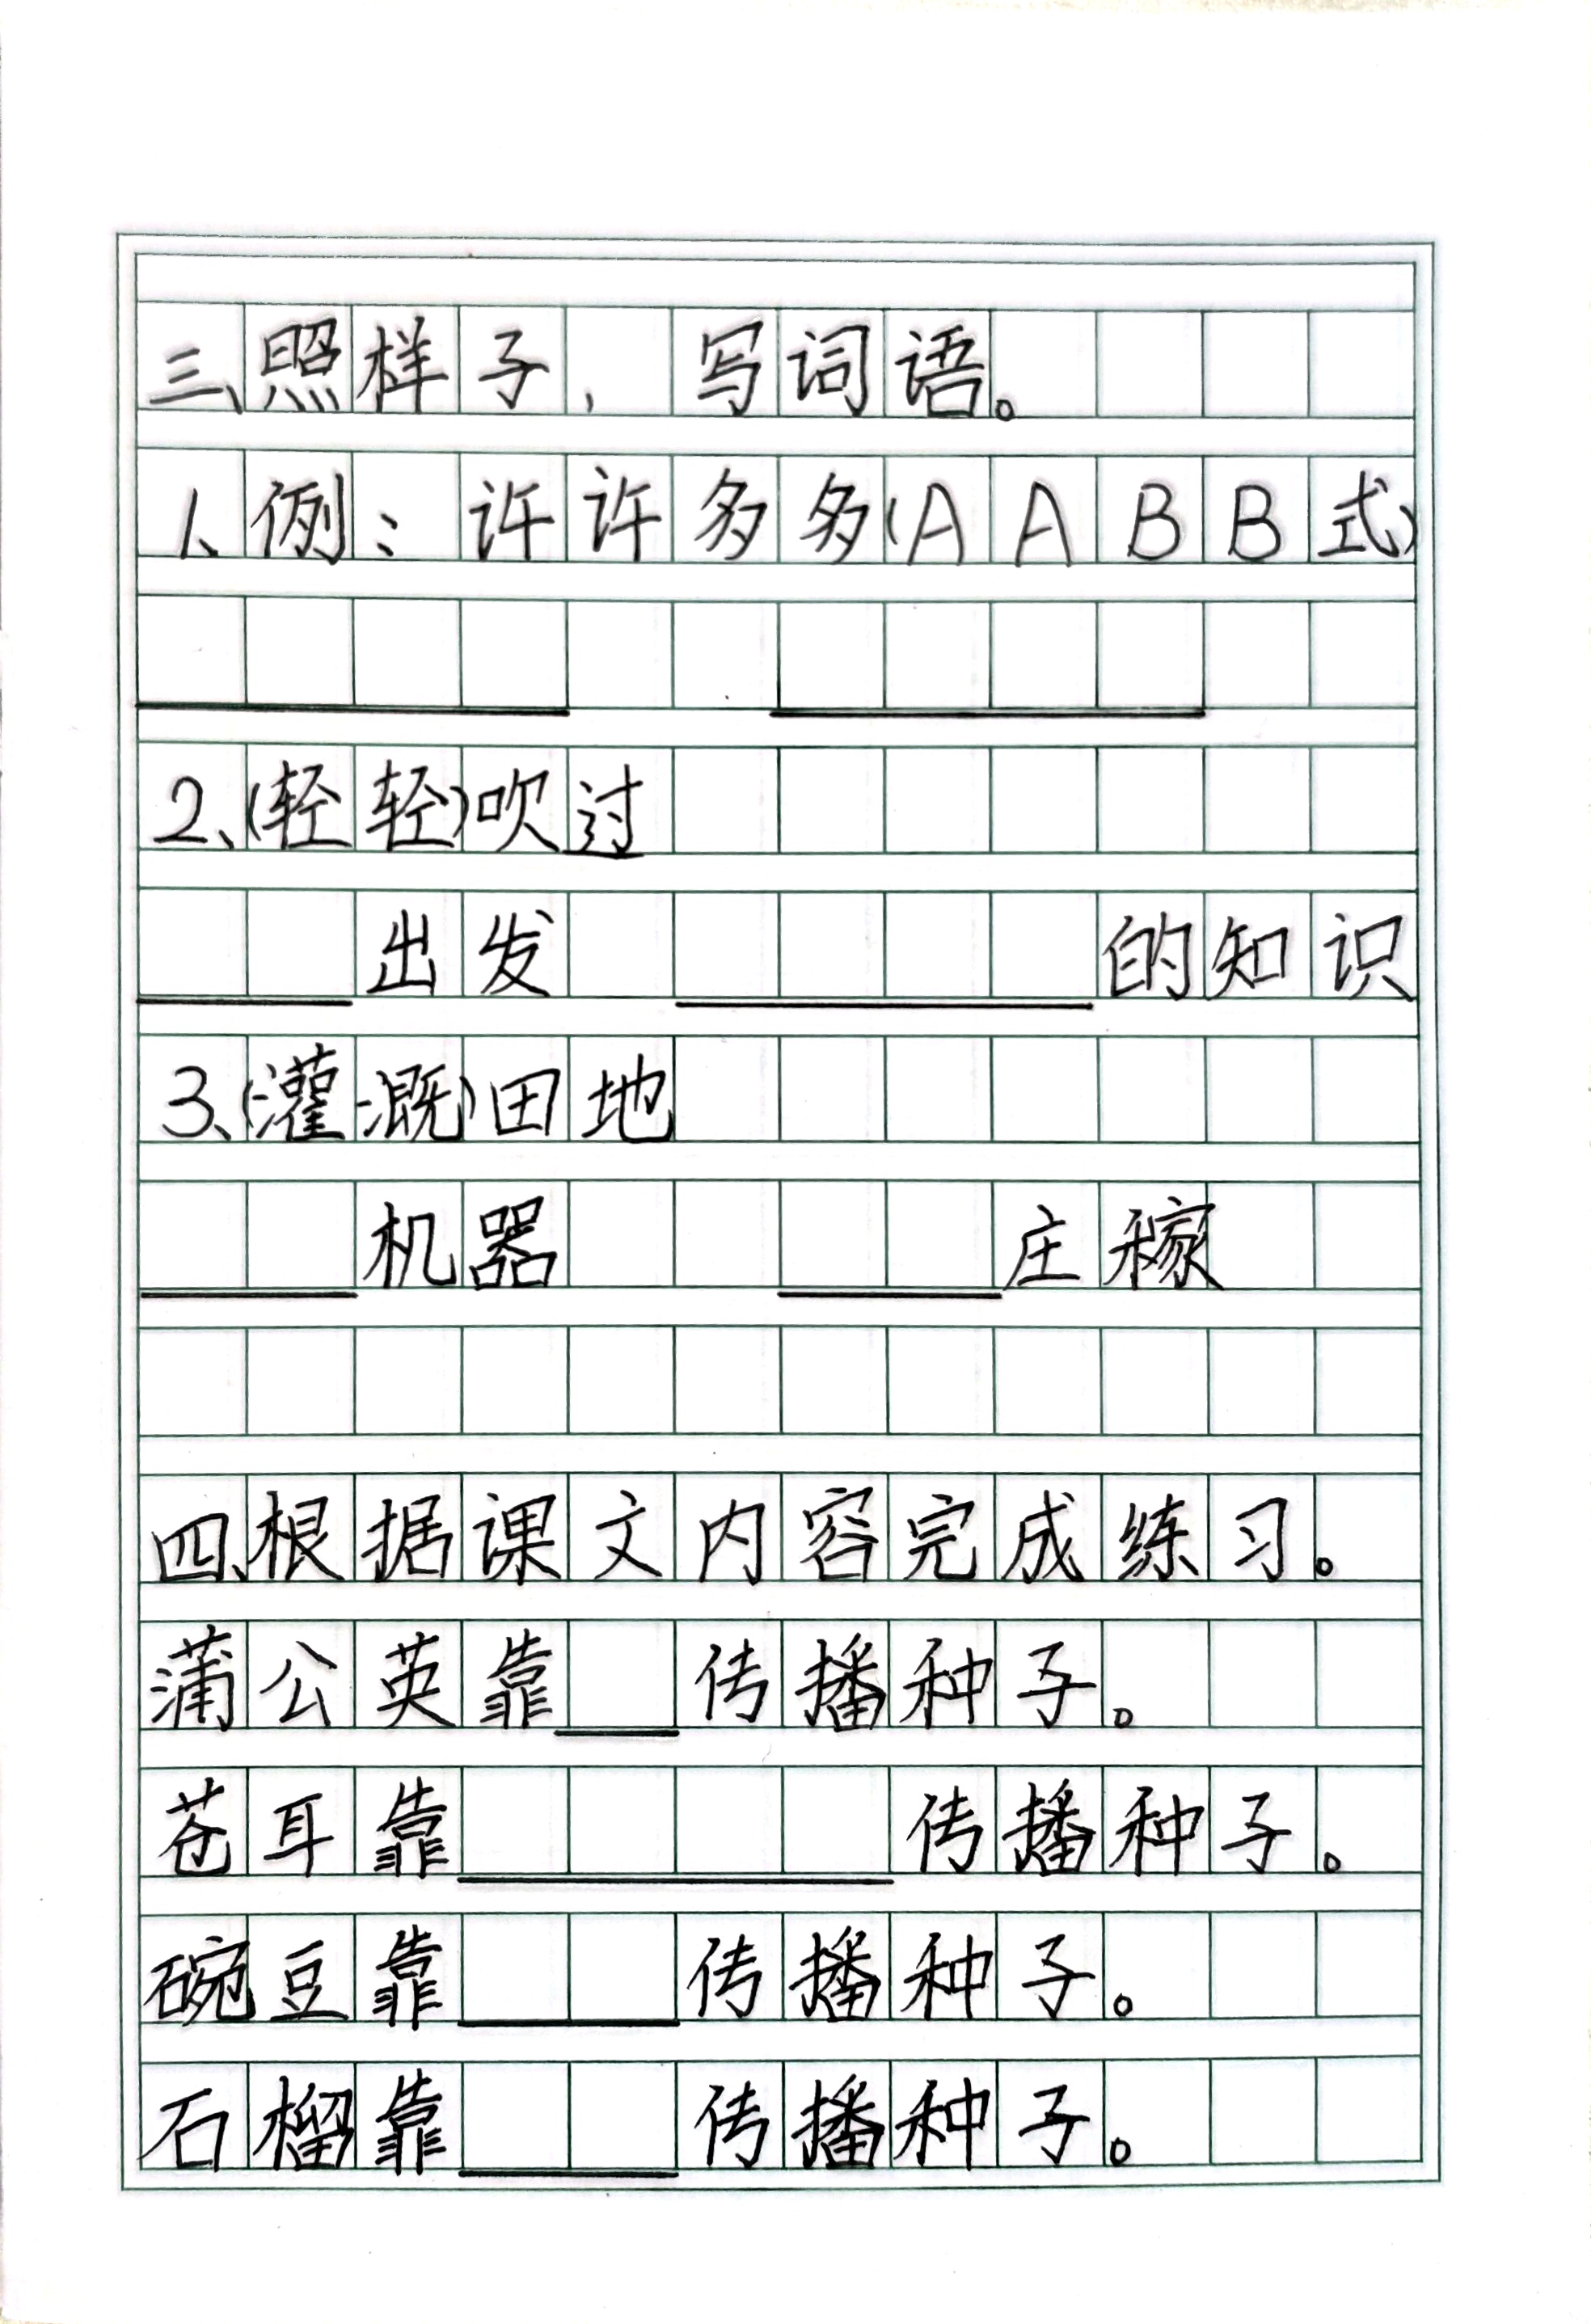 三、照样子，写词语。
1、例：许许多多(AABB式)
2、(轻轻)吹过
出发 的知识
3、(灌溉)田地
机器 庄稼
四、根据课文内容完成练习。
蒲公英靠 传播种子。
苍耳靠 传播种子。
碗豆靠 传播种子。
石榴靠 传播种子。